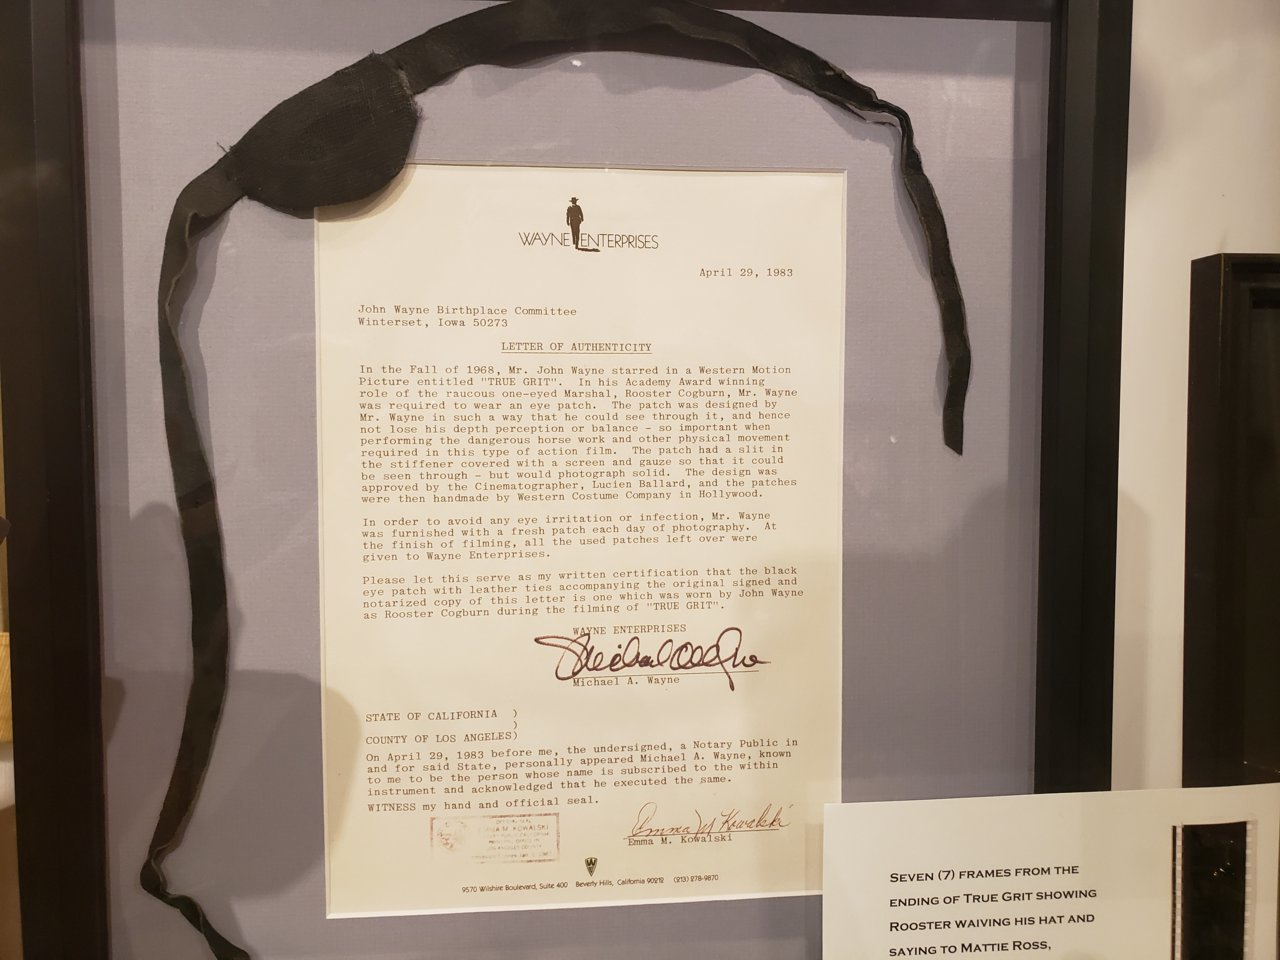 WAYNE ENTERPRISES
April 29, 1983
John Wayne Birthplace Committee
Winterset, Iowa 50273
LETTER OF AUTHENTICITY
In the Fall of 1968, Mr. John Wayne starred in a Western Motion
Picture entitled "TRUE GRIT". In his Academy Award winning
role of the raucous one-eyed Marshal, Rooster Cogburn, Mr. Wayne
was required to wear an eye patch. The patch was designed by
Mr. Wayne in such a way that he could see through it, and hence
not lose his depth perception or balance - so important when
performing the dangerous horse work and other physical movement
required in this type of action film. The patch had a slit in
the stiffener covered with a screen and gauze so that it could
be seen through - but would photograph solid. The design was
approved by the Cinematographer, Lucien Ballard, and the patches
were then handmade by Western Costume Company in Hollywood.
In order to avoid any eye irritation or infection, Mr. Wayne
was furnished with a fresh patch each day of photography. At
the finish of filming, all the used patches left over were
given to Wayne Enterprises.
Please let this serve as my written certification that the black
eye patch with leather ties accompanying the original signed and
notarized copy of this letter is one which was worn by John Wayne
as Rooster Cogburn during the filming of "TRUE GRIT".
WAYNE ENTERPRISES
Michael A. Wayne
STATE OF CALIFORNIA )
)
COUNTY OF LOS ANGELES)
On April 29, 1983 before me, the undersigned, a Notary Public in
and for said State, personally appeared Michael A. Wayne, known
to me to be the person whose name is subscribed to the within
instrument and acknowledged that he executed the same.
WITNESS my hand and official seal.
Emma M. Kowalski
Emma M. Kowalski
EMMA M. KOWALSKI
9570 Wilshire Boulevard, Suite 400 Beverly Hills, California 90212 (213) 278-9870
SEVEN (7) FRAMES FROM THE
ENDING OF TRUE GRIT SHOWING
ROOSTER WAIVING HIS HAT AND
SAYING TO MATTIE ROSS,